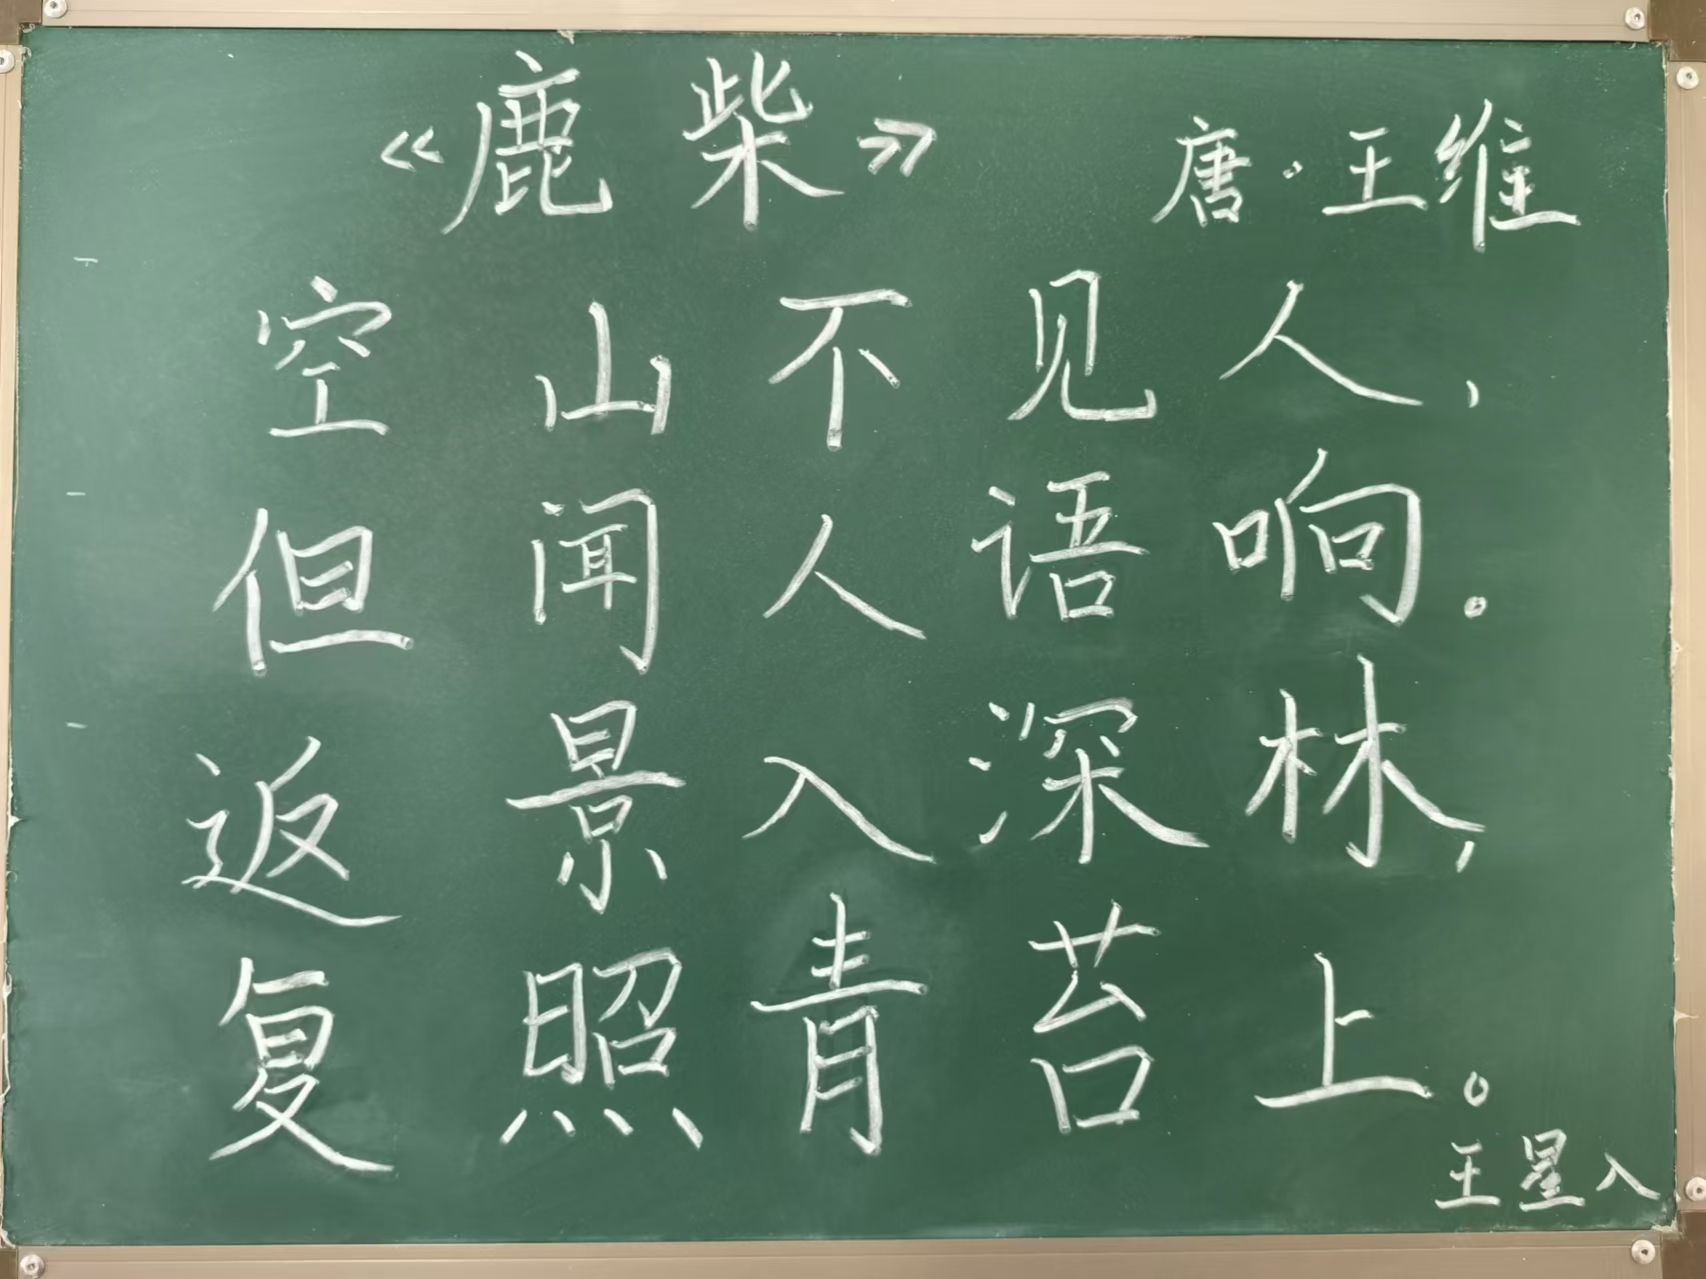 《鹿柴》 唐·王维
空山不见人，
但闻人语响。
返景入深林，
复照青苔上。
王星入